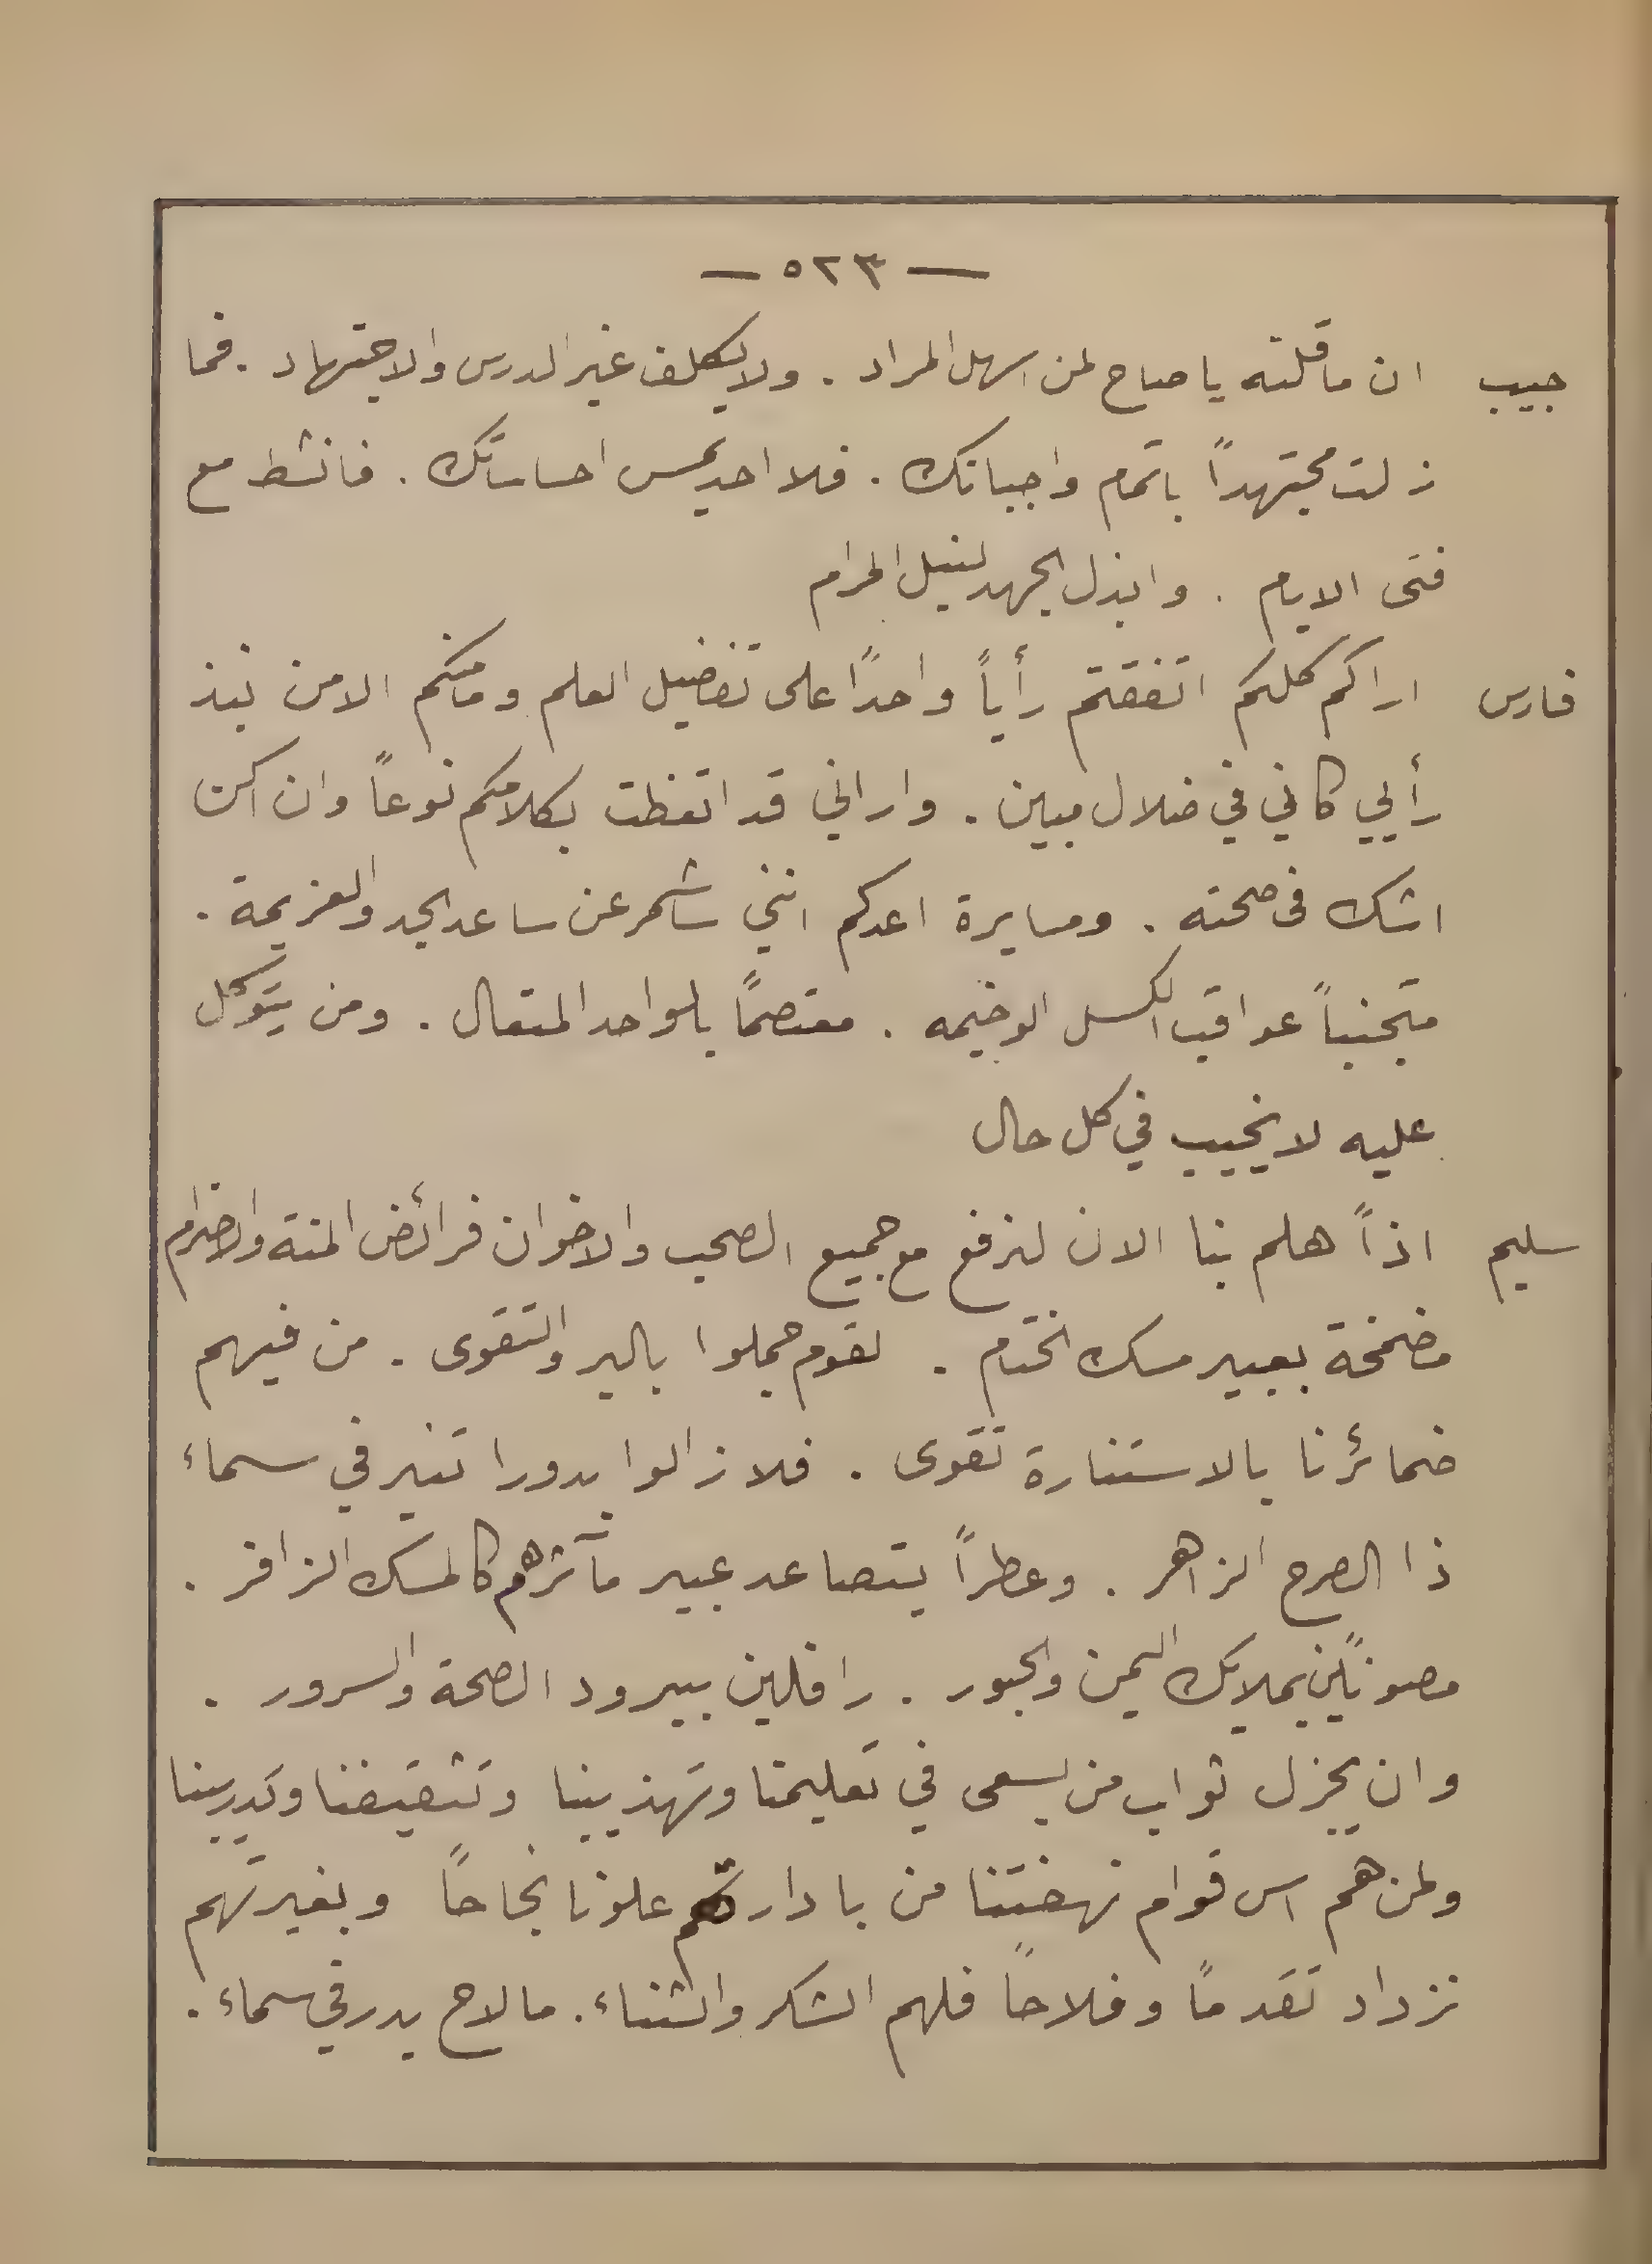 — ٥٢٣ —
حبيب ان ما قلته يا صاح لمن اسهل المراد . ولا يكلف غير الدرس والاجتهاد . فما
زلت مجتهداً باتمام واجباتك . فلا احد يمس احساساتك . فانشط مع
فتى الايام . وابذل الجهد لنيل المرام
فارس اراكم كلكم اتفقتم رأياً واحداً على تفضيل العلم وما منكم الا من نبذ
رأيي كاني في ضلال مبين . واراني قد اتعظت بكلامكم نوعاً وان اكن
اشك فى صحته . ومسايرة اعدكم انني ساشمر عن ساعد الجد والعزيمة .
متجنباً عواقب الكسل الوخيمه . معتصماً بالواحد المتعال . ومن يتوكل
عليه لا يخيب في كل حال
سليم اذاً هلم بنا الان لنرفع مع جميع الصحب والاخوان فرائض المنة والاحترام
مضمخة بعبير مسك الختام . لقوم جملوا بالبر والتقوى . من فيهم
ضمائرنا بالاستنارة تقوى . فلا زالوا بدورا تنير في سماء
ذا الصرح الزاهر . وعطراً يتصاعد عبير مآثرهم كالمسك الزافر .
مصونين بملايك اليمن والحبور . رافلين ببرود الصحة والسرور .
وان يجزل ثواب من يسعى في تعليمنا وتهذيبنا وتثقيفنا وتدريبنا
ولمن هم اس قوام نهضتنا من بادارتهم علونا نجاحاً وبغيرتهم
نزداد تقدماً وفلاحاً فلهم الشكر والثناء . ما لاح بدر في سماء .